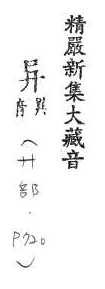 精嚴新集大藏音
异
(廾部.P720)